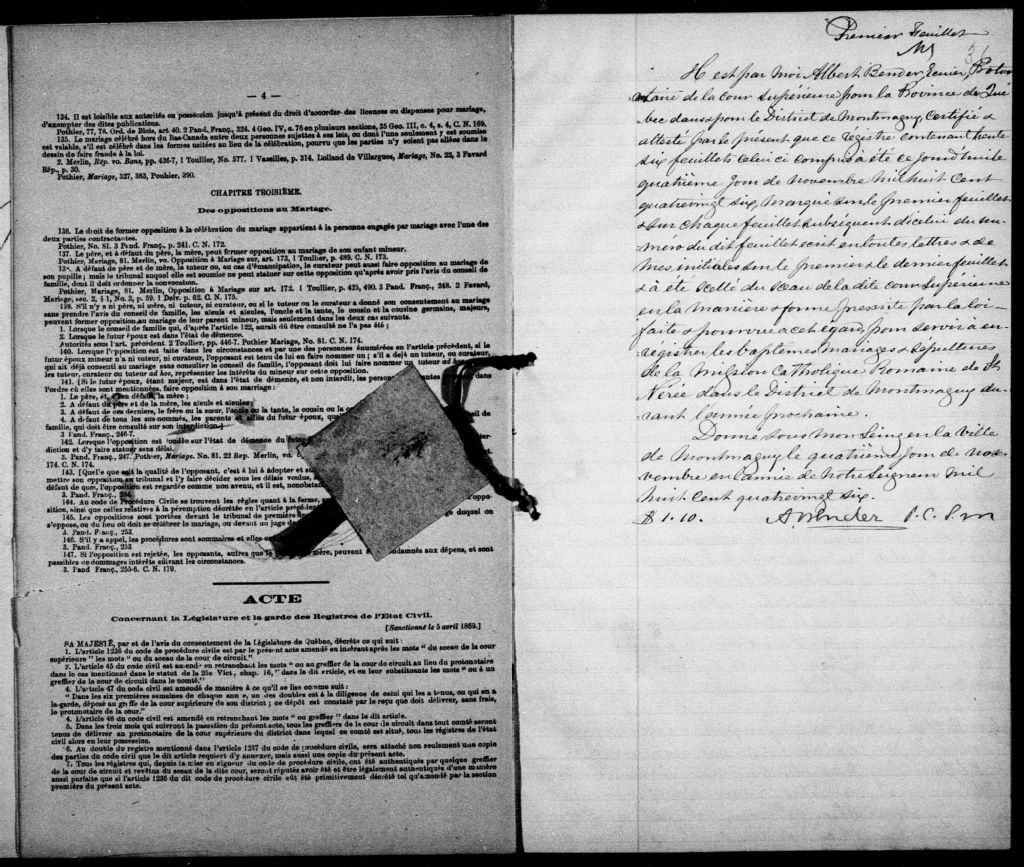 — 4 —
134. Il est loisible aux autorités en possession jusqu'à présent du droit d'accorder des licences ou dispenses pour mariage,
d'exempter des dites publications.
Pothier, 77, 78. Ord. de Blois, art. 40. 2 Pand. Franç., 324. 4 Geo. IV, c. 76 en plusieurs sections, 35 Geo. III, c. 4, s. 4, C. N. 169.
135. Le mariage célébré hors du Bas-Canada entre deux personnes sujettes à ses lois, ou dont l'une seulement y est soumise
est valable, s'il est célébré dans les formes usitées au lieu de la célébration, pourvu que les parties n'y soient pas allées dans le
dessin de faire fraude à la loi.
2. Merlin, Rép. vo. Bans, pp. 436-7, 1 Toullier, No. 577. 1 Vasselles, p. 314. Lolland de Villargues, Mariage, No. 23, 3 Favard
Rép., p. 30.
Pothier, Mariage, 327, 363, Pouhier, 390.
CHAPITRE TROISIÈME.
Des oppositions au Mariage.
136. Le droit de former opposition à la célébration du mariage appartient à la personne engagée par mariage avec l'une des
deux parties contractantes.
Pothier, No. 81. 3 Pand. Franç., p. 241. C. N. 172.
137. Le père, et à défaut du père, la mère, peut former opposition au mariage de son enfant mineur.
Pothier, Mariage, 81. Merlin, vo. Opposition à Mariage sur art. 173, 1 Toullier, p. 489. C. N. 173.
A défaut de père et de mère, le tuteur ou, au cas d'émancipation, le curateur peut aussi faire opposition au mariage de
son pupille; mais le tribunal auquel elle est soumise ne peut statuer sur cette opposition qu'après avoir pris l'avis du conseil de
famille, dont il doit ordonner la convocation.
Pothier, Mariage, 81. Merlin, Opposition à Mariage sur art. 172. 1 Toullier, p. 425, 490. 3 Pand. Franç., 248. 2 Favard,
Mariage, sec. 2, § 1, No. 3, p. 59. 1 Delv. p. 62. C. N. 175.
139. S'il n'y a ni père, ni mère, ni tuteur, ni curateur, ou si le tuteur ou le curateur a donné son consentement au mariage
sans prendre l'avis du conseil de famille, les aïeuls et aïeules, l'oncle et la tante, le cousin et la cousine germains, majeurs,
peuvent former opposition au mariage de leur parent mineur, mais seulement dans les deux cas suivants.
1. Lorsque le conseil de famille qui, d'après l'article 122, aurait dû être consulté ne l'a pas été;
2. Lorsque le futur époux est dans l'état de démence.
Autorités sous l'art. précédent. 2 Toullier, pp. 446-7. Pothier Mariage, No. 81. C. N. 174.
140. Lorsque l'opposition est faite dans les circonstances et par une des personnes énumérées en l'article précédent, si le
futur époux mineur n'a ni tuteur, ni curateur, l'opposant est tenu de lui en faire nommer un; s'il a déjà un tuteur, ou curateur,
qui ait déjà consenti au mariage sans consulter le conseil de famille, l'opposant doit lui faire nommer un tuteur ad hoc, pour
les tuteur, curateur ou tuteur ad hoc, représenter les intérêts du mineur sur cette opposition.
141. [Si le futur époux, étant majeur, est dans l'état de démence, et non interdit, les person dans
l'ordre où elles sont mentionnées, faire opposition à son mariage:
1. Le père, et à son défaut, la mère;
2. A défaut du père et de la mère, les aïeuls et aïeules;
3. A défaut de ces derniers, le frère ou la sœur, l'oncle ou la tante, le cousin ou la
4. A défaut de tous les sus-nommés, les parents et alliés du futur époux, seil de
famille, qui doit être consulté sur son interdiction.]
3 Pand. Franç., 246-7.
142. Lorsque l'opposition est fondée sur l'état de démence du futur
diction et d'y faire statuer sans délai.
3. Pand. Franç., 247. Pothier, Mariage. No. 81. 22 Rep. Merlin, vo.
174. C. N. 174.
143. [Quel que soit la qualité de l'opposant, c'est à lui à adopter et
mettre son opposition au tribunal et l'y faire décider sous les délais voulus,
défaut de quoi, l'opposition est regardée comme non avenu, et il est,
3. Pand. Franç.,
144. Au code de Procédure Civile se trouvent les règles quant à la forme, l'oppo-
sition, ainsi que celles relatives à la péremption décrétée en l'article
145. Les oppositions sont portées devant le tribunal de première duquel on
s'oppose, ou du lieu où doit se célébrer le mariage, ou devant un juge
3. Pand. Franç., 253.
146. S'il y a appel, les procédures sont sommaires et elles
3. Pand. Franç., 253
147. Si l'opposition est rejetée, les opposants, autres que mère, peuvent condamnés aux dépens, et sont
passibles de dommages intérêts suivant les circonstances.
3. Pand Franç., 255-6. C. N. 179.
ACTE
Concernant la Législature et la garde des Registres de l'Etat Civil.
[Sanctionné le 5 avril 1869.]
SA MAJESTÉ, par et de l'avis du consentement de la Législature de Québec, décrète ce qui suit:
1. L'article 1236 du code de procédure civile est par le présent acte amendé en insérant après les mots " du sceau de la cour
supérieure " les mots " ou du sceau de la cour de circuit."
2. L'article 45 du code civil est amendé en retranchant les mots " ou au greffier de la cour de circuit au lieu du protonotaire
dans le cas mentionné dans le statut de la 25e Vict, chap. 16," dans le dit article, et en leur substituants les mots " ou à un
greffier de la cour de circuit dans le comté."
4. L'article 47 du code civil est amendé de manière à ce qu'il se lise comme suit:
" Dans les six premières semaines de chaque année, un des doubles est à la diligence de celui qui les a tenus, ou qui en a
la garde, déposé au greffe de la cour supérieure de son district; ce dépôt est constaté par le reçu que doit délivrer, sans frais,
le protonotaire de la cour."
4. L'article 48 du code civil est amendé en retranchant les mots " ou greffier " dans le dit article.
5. Dans les trois mois qui suivront la passation du présent acte, tous les greffiers de la cour de circuit dans tout comté seront
tenus de délivrer au protonotaire de la cour supérieure du district dans lequel ce comté est situé, tous les registres de l'état
civil alors en leur possession.
6. Au double du registre mentionné dans l'article 1237 du code de procédure civile, sera attaché non seulement une copie
des parties du code civil que le dit article requiert d'y annexer, mais aussi une copie du présent acte.
7. Tous les registres qui, depuis la mise en vigueur du code de procédure civile, ont été authentiqués par quelque greffier
de la cour de circuit et revêtus du sceau de la dite cour, seront réputés avoir été et être légalement authentiqués d'une manière
aussi parfaite que si l'article 1236 du dit code de procédure civile eût été primitivement décrété tel qu'amendé par la section
première du présent acte.
Premier Feuillet
36
Il est par moi Albert Bender, Ecuier, Proton
otaire de la cour supérieure pour la Province de Qué
bec dans & pour le District de Montmagny, certifié &
attesté par le présent que ce régistre contenant trente
six feuillets celui ci compris a été ce jourd'huile
quatrième jour de novembre mil huit cent
quatrevingt six, marqué sur le premier feuillet
& sur chaque feuillet subséquent d'icelui du nu-
mero du dit feuillet écrit en toutes lettres & de
mes initiales sur le premier & le dernier feuillet
& a été scellé du sceau de la dite cour supérieure
en la manière & forme prescrite par la loi
faite & pourvue à cet égard, pour servir à en-
régistrer les baptêmes mariages & sépultures
de la mission Catholique Romaine de St
Nérée dans le District de Montmagny du-
rant l'année prochaine.
Donné sous mon Seing en la ville
de Montmagny le quatrième jour de nov-
vembre en l'année de Notre Seigneur mil
huit cent quatrevingt six.
$1.10. A. Bender P. C. S. M